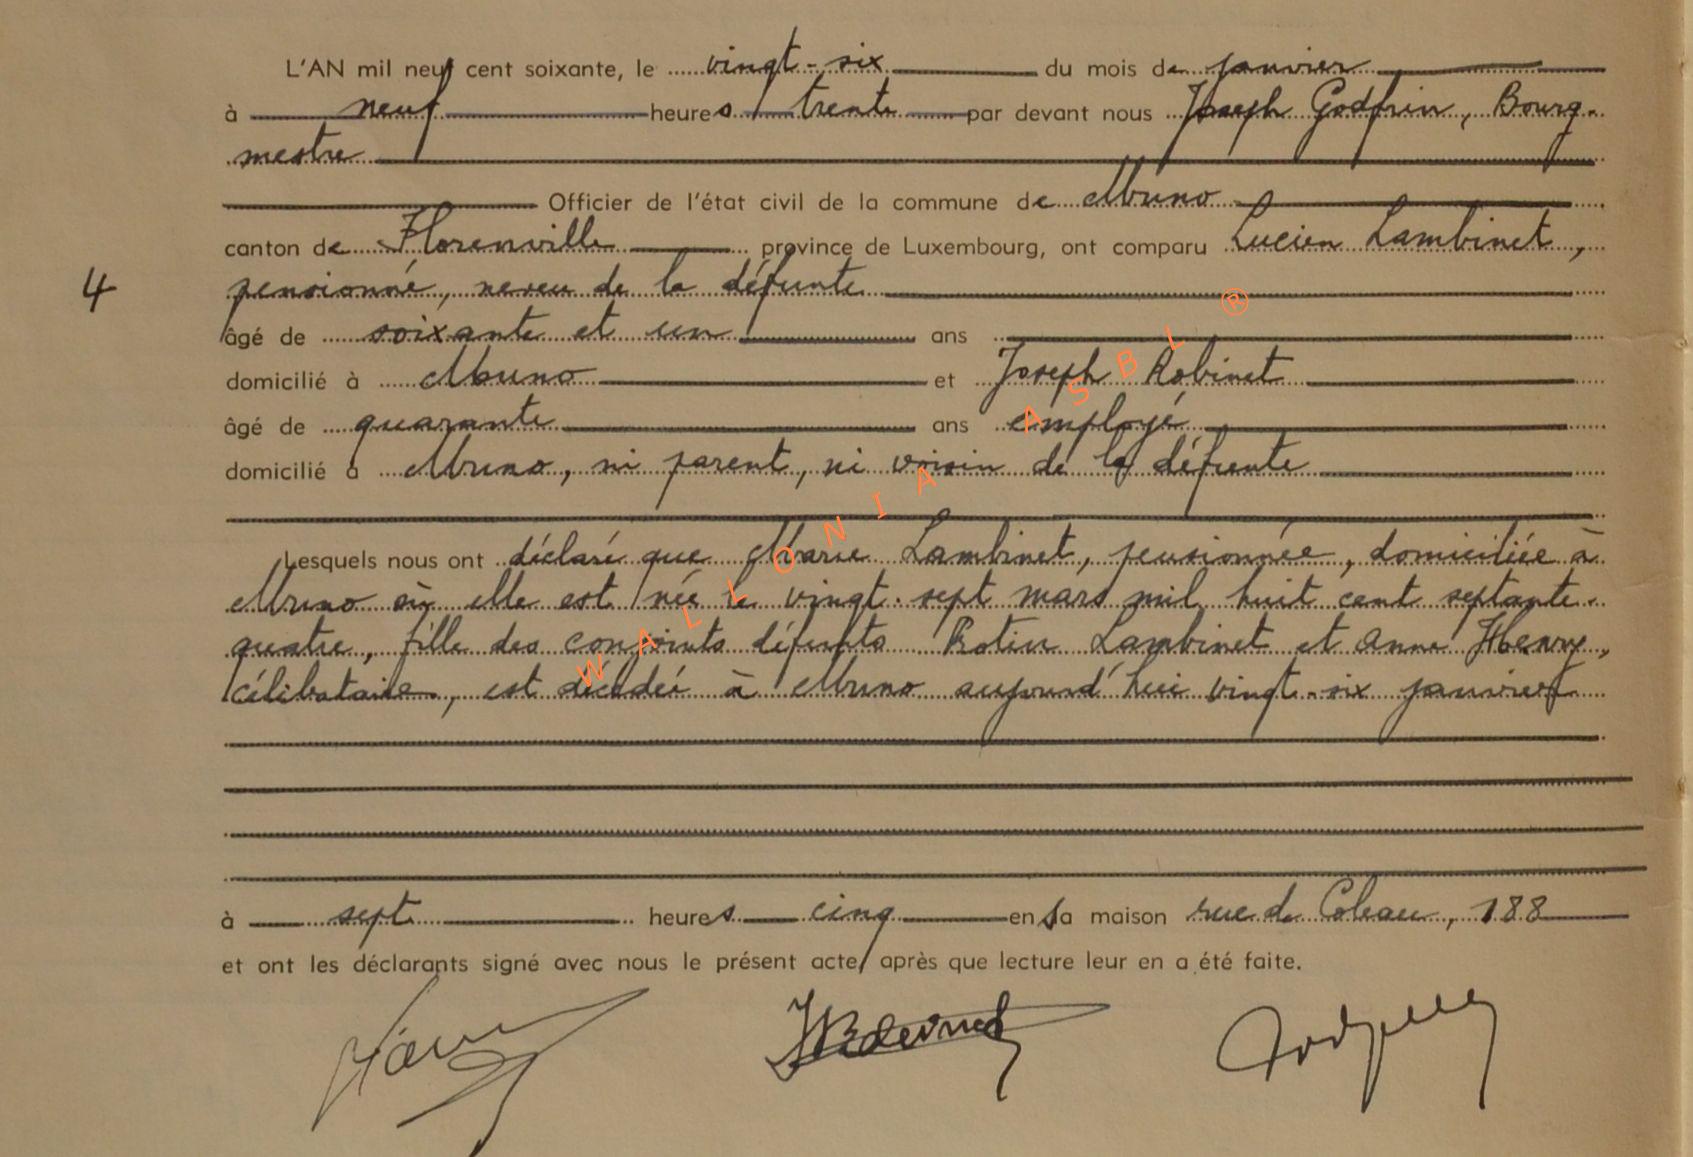 L'AN mil neuf cent soixante, le vingt-six du mois de janvier
à neuf heures trente par devant nous Joseph Godfrin, Bourg-
mestre
Officier de l'état civil de la commune de Muno
canton de Florenville province de Luxembourg, ont comparu Lucien Lambinet,
4 pensionné, neveu de la défunte
âgé de soixante et un ans
domicilié à Muno et Joseph Robinet
âgé de quarante ans employé
domicilié à Muno, ni parent, ni voisin de la défunte
Lesquels nous ont déclaré que Marie Lambinet, pensionnée, domiciliée à
Muno où elle est née le vingt-sept mars mil huit cent septante-
quatre, fille des conjoints défunts Lambinet et Anne Henry,
célibataire, est décédée à Muno aujourd'hui vingt-six janvier
à sept heures cinq en sa maison rue de 188
et ont les déclarants signé avec nous le présent acte, après que lecture leur en a été faite.
WALLONIA ASBL ®